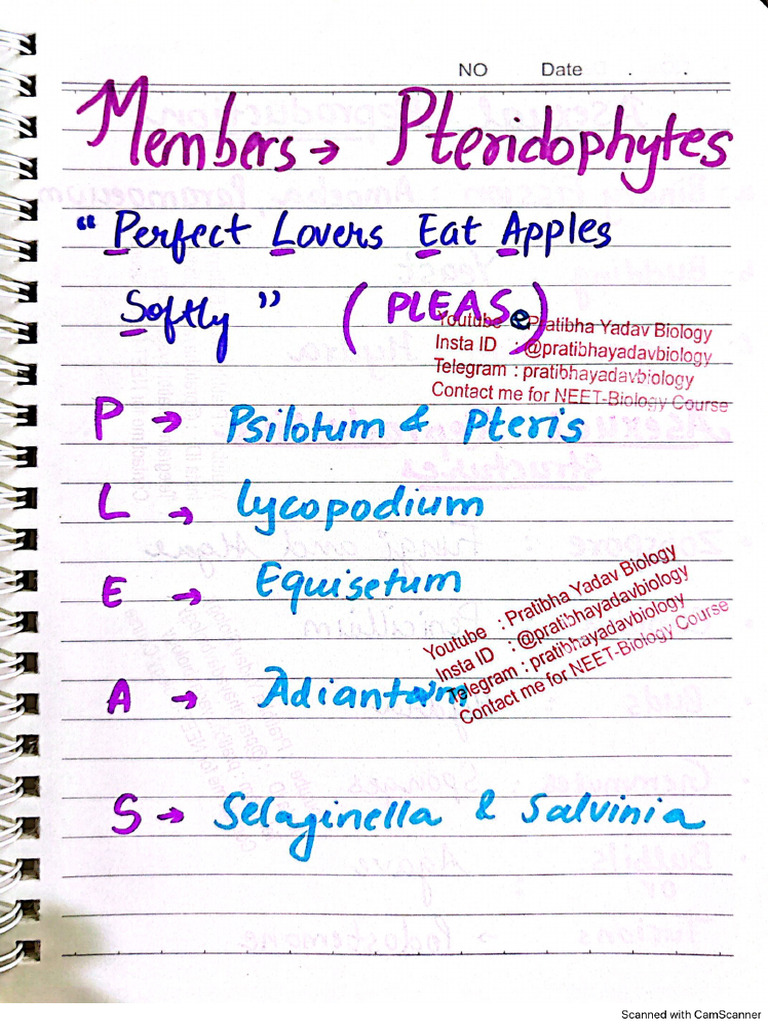 NO Date . .
Members → Pteridophytes
“ Perfect Lovers Eat Apples
Softly ” ( PLEASe )
Youtube : Pratibha Yadav Biology
Insta ID : @pratibhayadavbiology
Telegram : pratibhayadavbiology
Contact me for NEET-Biology Course
P → Psilotum & Pteris
L → Lycopodium
E → Equisetum
Youtube : Pratibha Yadav Biology
Insta ID : @pratibhayadavbiology
Telegram : pratibhayadavbiology
Contact me for NEET-Biology Course
A → Adiantum
S → Selaginella & Salvinia
Scanned with CamScanner